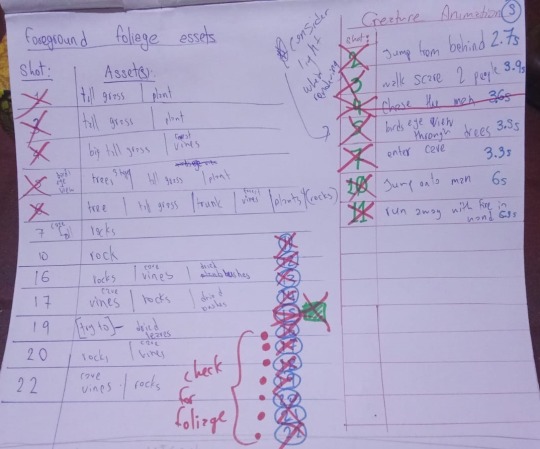 foreground foliege assets
Shot:
Asset(s):
tall grass | plant
tall grass | plant
big tall grass | vines
trees | tall grass | plant
tree | tall grass | trunk | vines | plants (rocks)
7 rocks
10 rock
16 rocks | cave vines | dried bushes
17 cave vines | rocks | dried bushes
19 [try to] - dried leaves
20 rocks | cave vines
22 cave vines | rocks
check
for
foliege
consider
light
when
rendering
Creature Animations
shot:
2 Jump from behind 2.7s
3 walk scare 2 people 3.9s
4 chase the men 3.6s
birds eye view through trees 3.3s
7 enter cave 3.3s
10 Jump onto man 6s
11 run away with in hand